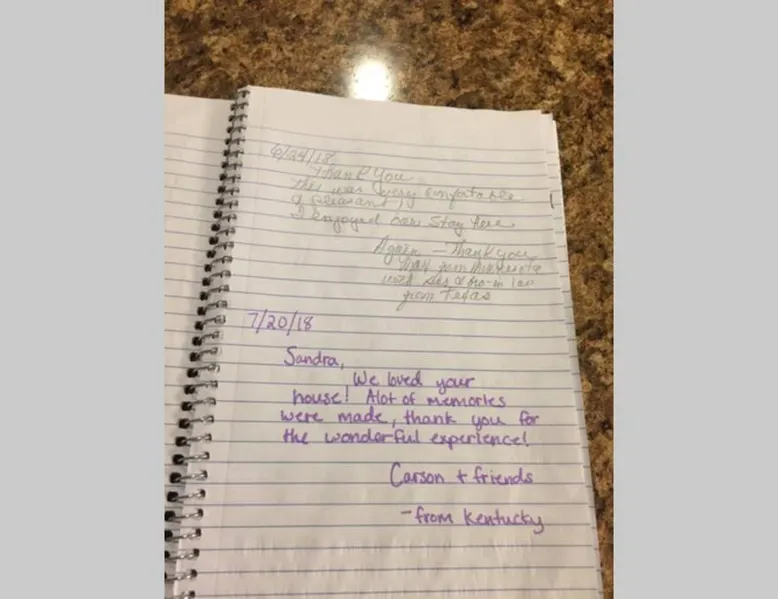 6/24/18
Thank You
this was very comfortable
& pleasant,
I enjoyed our stay here
Again - Thank you
from Minnesota
& from
from Texas
7/20/18
Sandra,
We loved your
house! Alot of memories
were made, thank you for
the wonderful experience!
Carson + friends
- from Kentucky